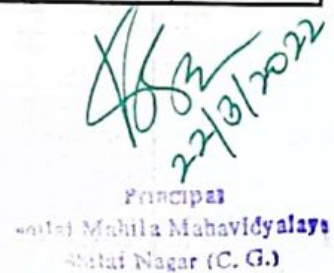 22/3/2022
Principal
Mahila Mahavidyalaya
Nagar (C. G.)